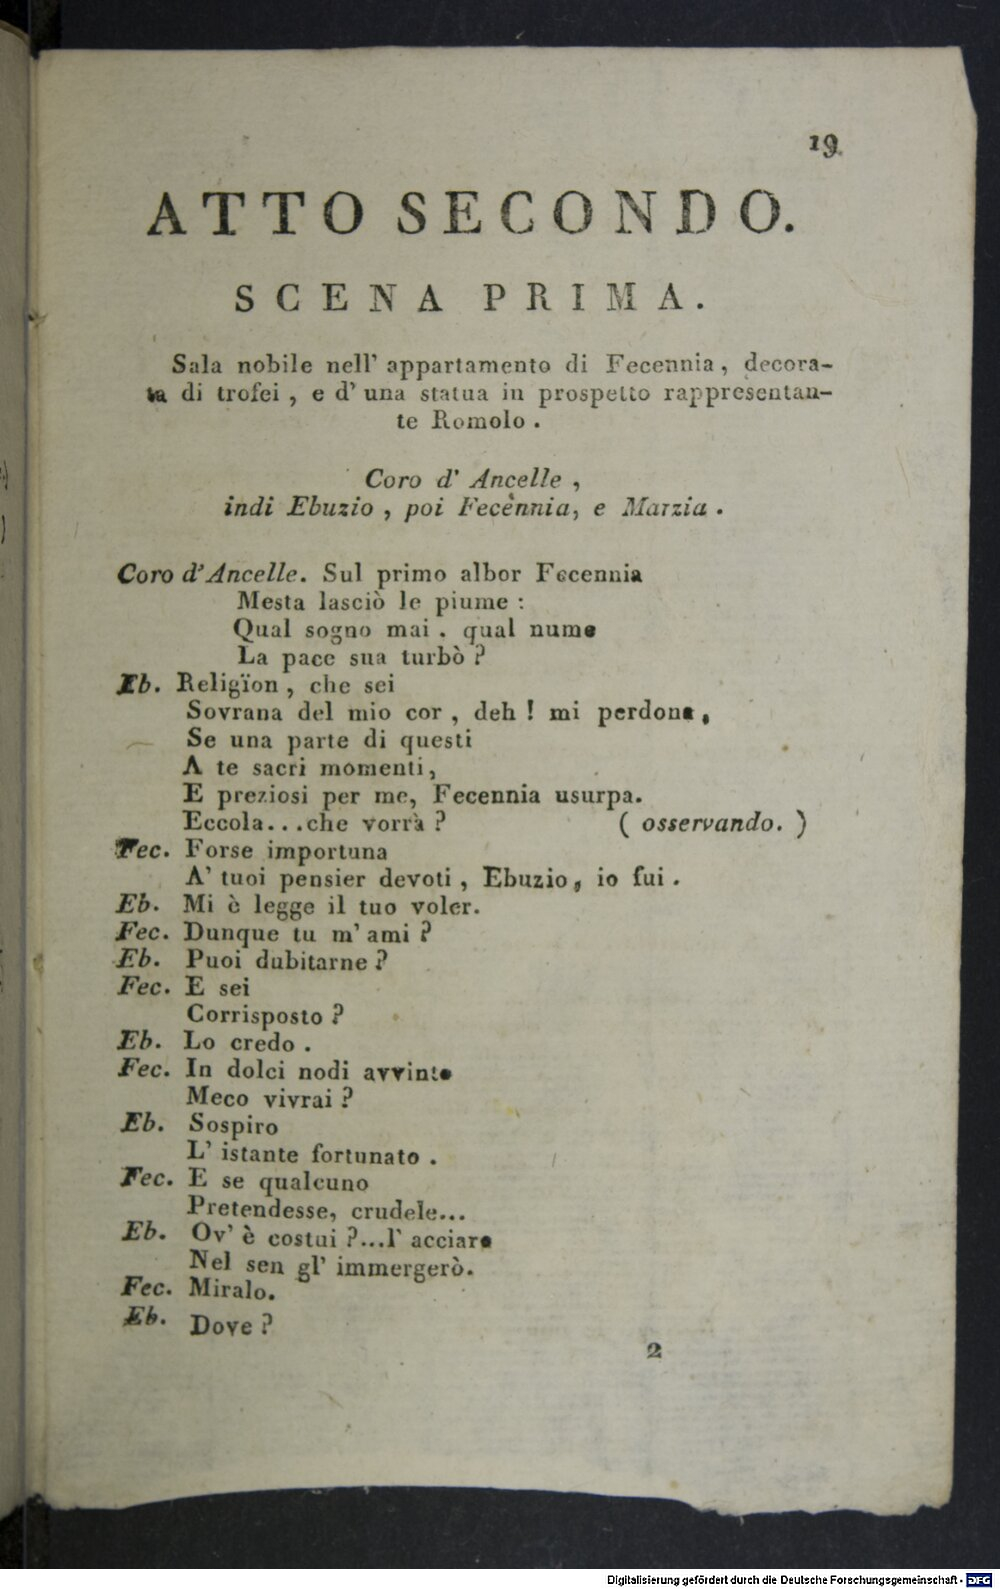 19
ATTO SECONDO.
SCENA PRIMA.
Sala nobile nell' appartamento di Fecennia, decora-
ta di trofei, e d' una statua in prospetto rappresentan-
te Romolo.
Coro d' Ancelle,
indi Ebuzio, poi Fecennia, e Marzia.
Coro d'Ancelle. Sul primo albor Fecennia
Mesta lasciò le piume:
Qual sogno mai. qual nume
La pace sua turbò?
Eb. Religïon, che sei
Sovrana del mio cor, deh! mi perdona,
Se una parte di questi
A te sacri momenti,
E preziosi per me, Fecennia usurpa.
Eccola...che vorrà? (osservando.)
Fec. Forse importuna
A' tuoi pensier devoti, Ebuzio, io fui.
Eb. Mi è legge il tuo voler.
Fec. Dunque tu m' ami?
Eb. Puoi dubitarne?
Fec. E sei
Corrisposto?
Eb. Lo credo.
Fec. In dolci nodi avvinto
Meco vivrai?
Eb. Sospiro
L' istante fortunato.
Fec. E se qualcuno
Pretendesse, crudele...
Eb. Ov' è costui?...l' acciaro
Nel sen gl' immergerò.
Fec. Miralo.
Eb. Dove?
2
Digitalisierung gefördert durch die Deutsche Forschungsgemeinschaft - DFG